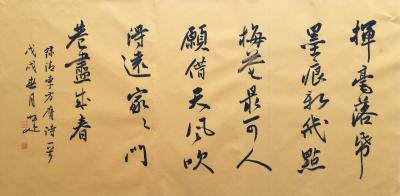 揮毫落帋
墨痕新幾點
梅花最可人
願借天風吹
得遠家々門
巷盡成春
錄清李方膺詩一首
戊戌春月